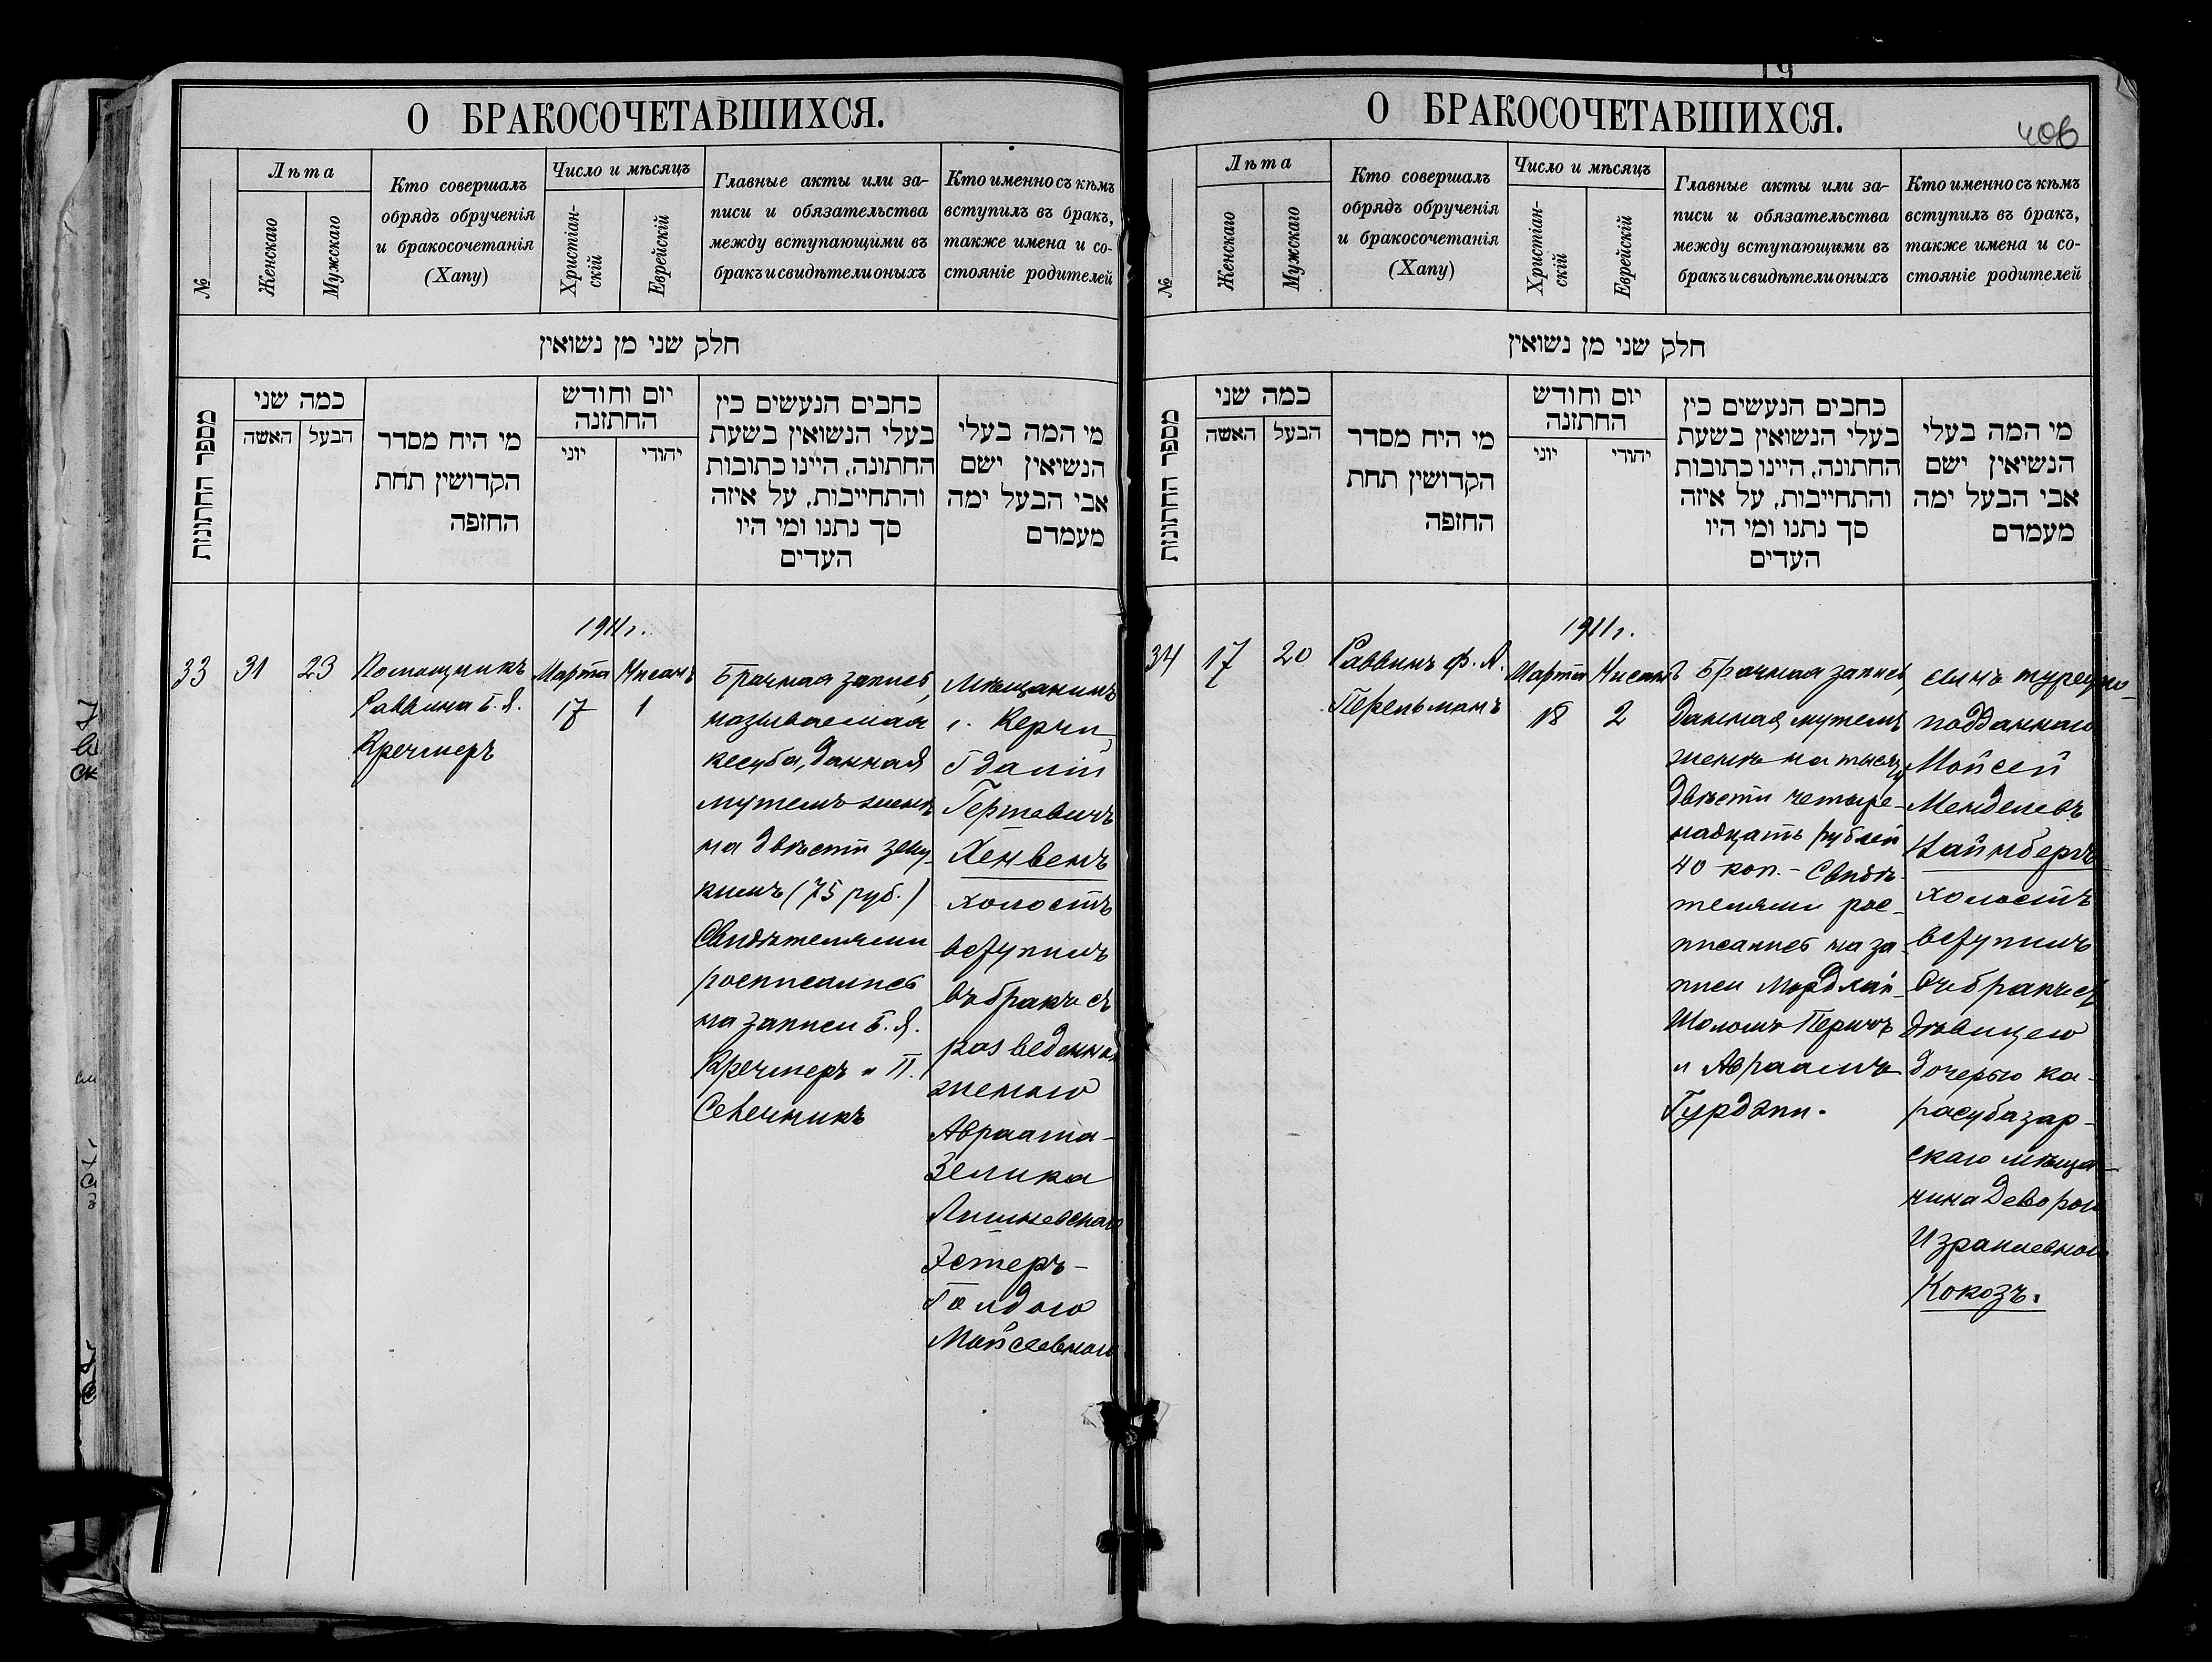 О БРАКОСОЧЕТАВШИХСЯ.
№
Лѣта
Женскаго
Мужскаго
Кто совершалъ
обрядъ обрученія
и бракосочетанія
(Хапу)
Число и мѣсяцъ
Христіан-
скій
Еврейскій
Главные акты или за-
писи и обязательства
между вступающими въ
бракъ и свидѣтели оныхъ
Кто именно съ кѣмъ
вступилъ въ бракъ,
также имена и со-
стояніе родителей
חלק שני מן נשואין
מספר החתונות
כמה שני
האשה
הבעל
מי היח מסדר
הקדושין תחת
החזפה
יום וחודש
החתזנה
יוני
יהודי
כחבים הנעשים כין
בעלי הנשואין בשעת
החתונה, היינו כתובות
והתחייבות, על איזה
סך נתנו ומי היו
העדים
מי המה בעלי
הנשיאין ישם
אבי הבעל ימה
מעמדם
1911 г.
33
31
23
Помощникъ
Раввина Б. Я.
Кречмеръ
Марта
17
Нисанъ
1
Брачная запись,
называемая
кесуба, данная
мужемъ женѣ
на двѣсти зеку-
кимъ (75 руб.)
Свидѣтелями
росписались
на записи Б. Я.
Кречмеръ и П.
Сенечникъ
Мѣщанинъ
г. Керчи
Гдалій
Гершовичъ
Хенвенъ
холостъ
вступилъ
въ бракъ съ
разведенною
женою
Авраама-
Зелика
Эстеръ-
Голдою
Мойсеевною
19
О БРАКОСОЧЕТАВШИХСЯ.
406
№
Лѣта
Женскаго
Мужскаго
Кто совершалъ
обрядъ обрученія
и бракосочетанія
(Хапу)
Число и мѣсяцъ
Христіан-
скій
Еврейскій
Главные акты или за-
писи и обязательства
между вступающими въ
бракъ и свидѣтели оныхъ
Кто именно съ кѣмъ
вступилъ въ бракъ,
также имена и со-
стояніе родителей
חלק שני מן נשואין
מספר החתונות
כמה שני
האשה
הבעל
מי היח מסדר
הקדושין תחת
החזפה
יום וחודש
החתזנה
יוני
יהודי
כחבים הנעשים כין
בעלי הנשואין בשעת
החתונה, היינו כתובות
והתחייבות, על איזה
סך נתנו ומי היו
העדים
מי המה בעלי
הנשיאין ישם
אבי הבעל ימה
מעמדם
1911 г.
34
17
20
Раввинъ Ф. А.
Перельманъ
Марта
18
Нисанъ
2
Брачная запись,
данная мужемъ
женѣ на тысячу
двѣсти четыре-
надцать рублей
40 коп. - Свидѣ-
телями рос-
писались на за-
писи Мордхай-
Шоломъ Перичъ
и Авраамъ
Гурджи.
сынъ турецко-
подданнаго
Мойсей
Менделевъ
Вайнбергъ
холостъ
вступилъ
въ бракъ съ
дѣвицею
дочерью ка-
расубазар-
скаго мѣща-
нина Деворою
Израилевною
Кокозъ.